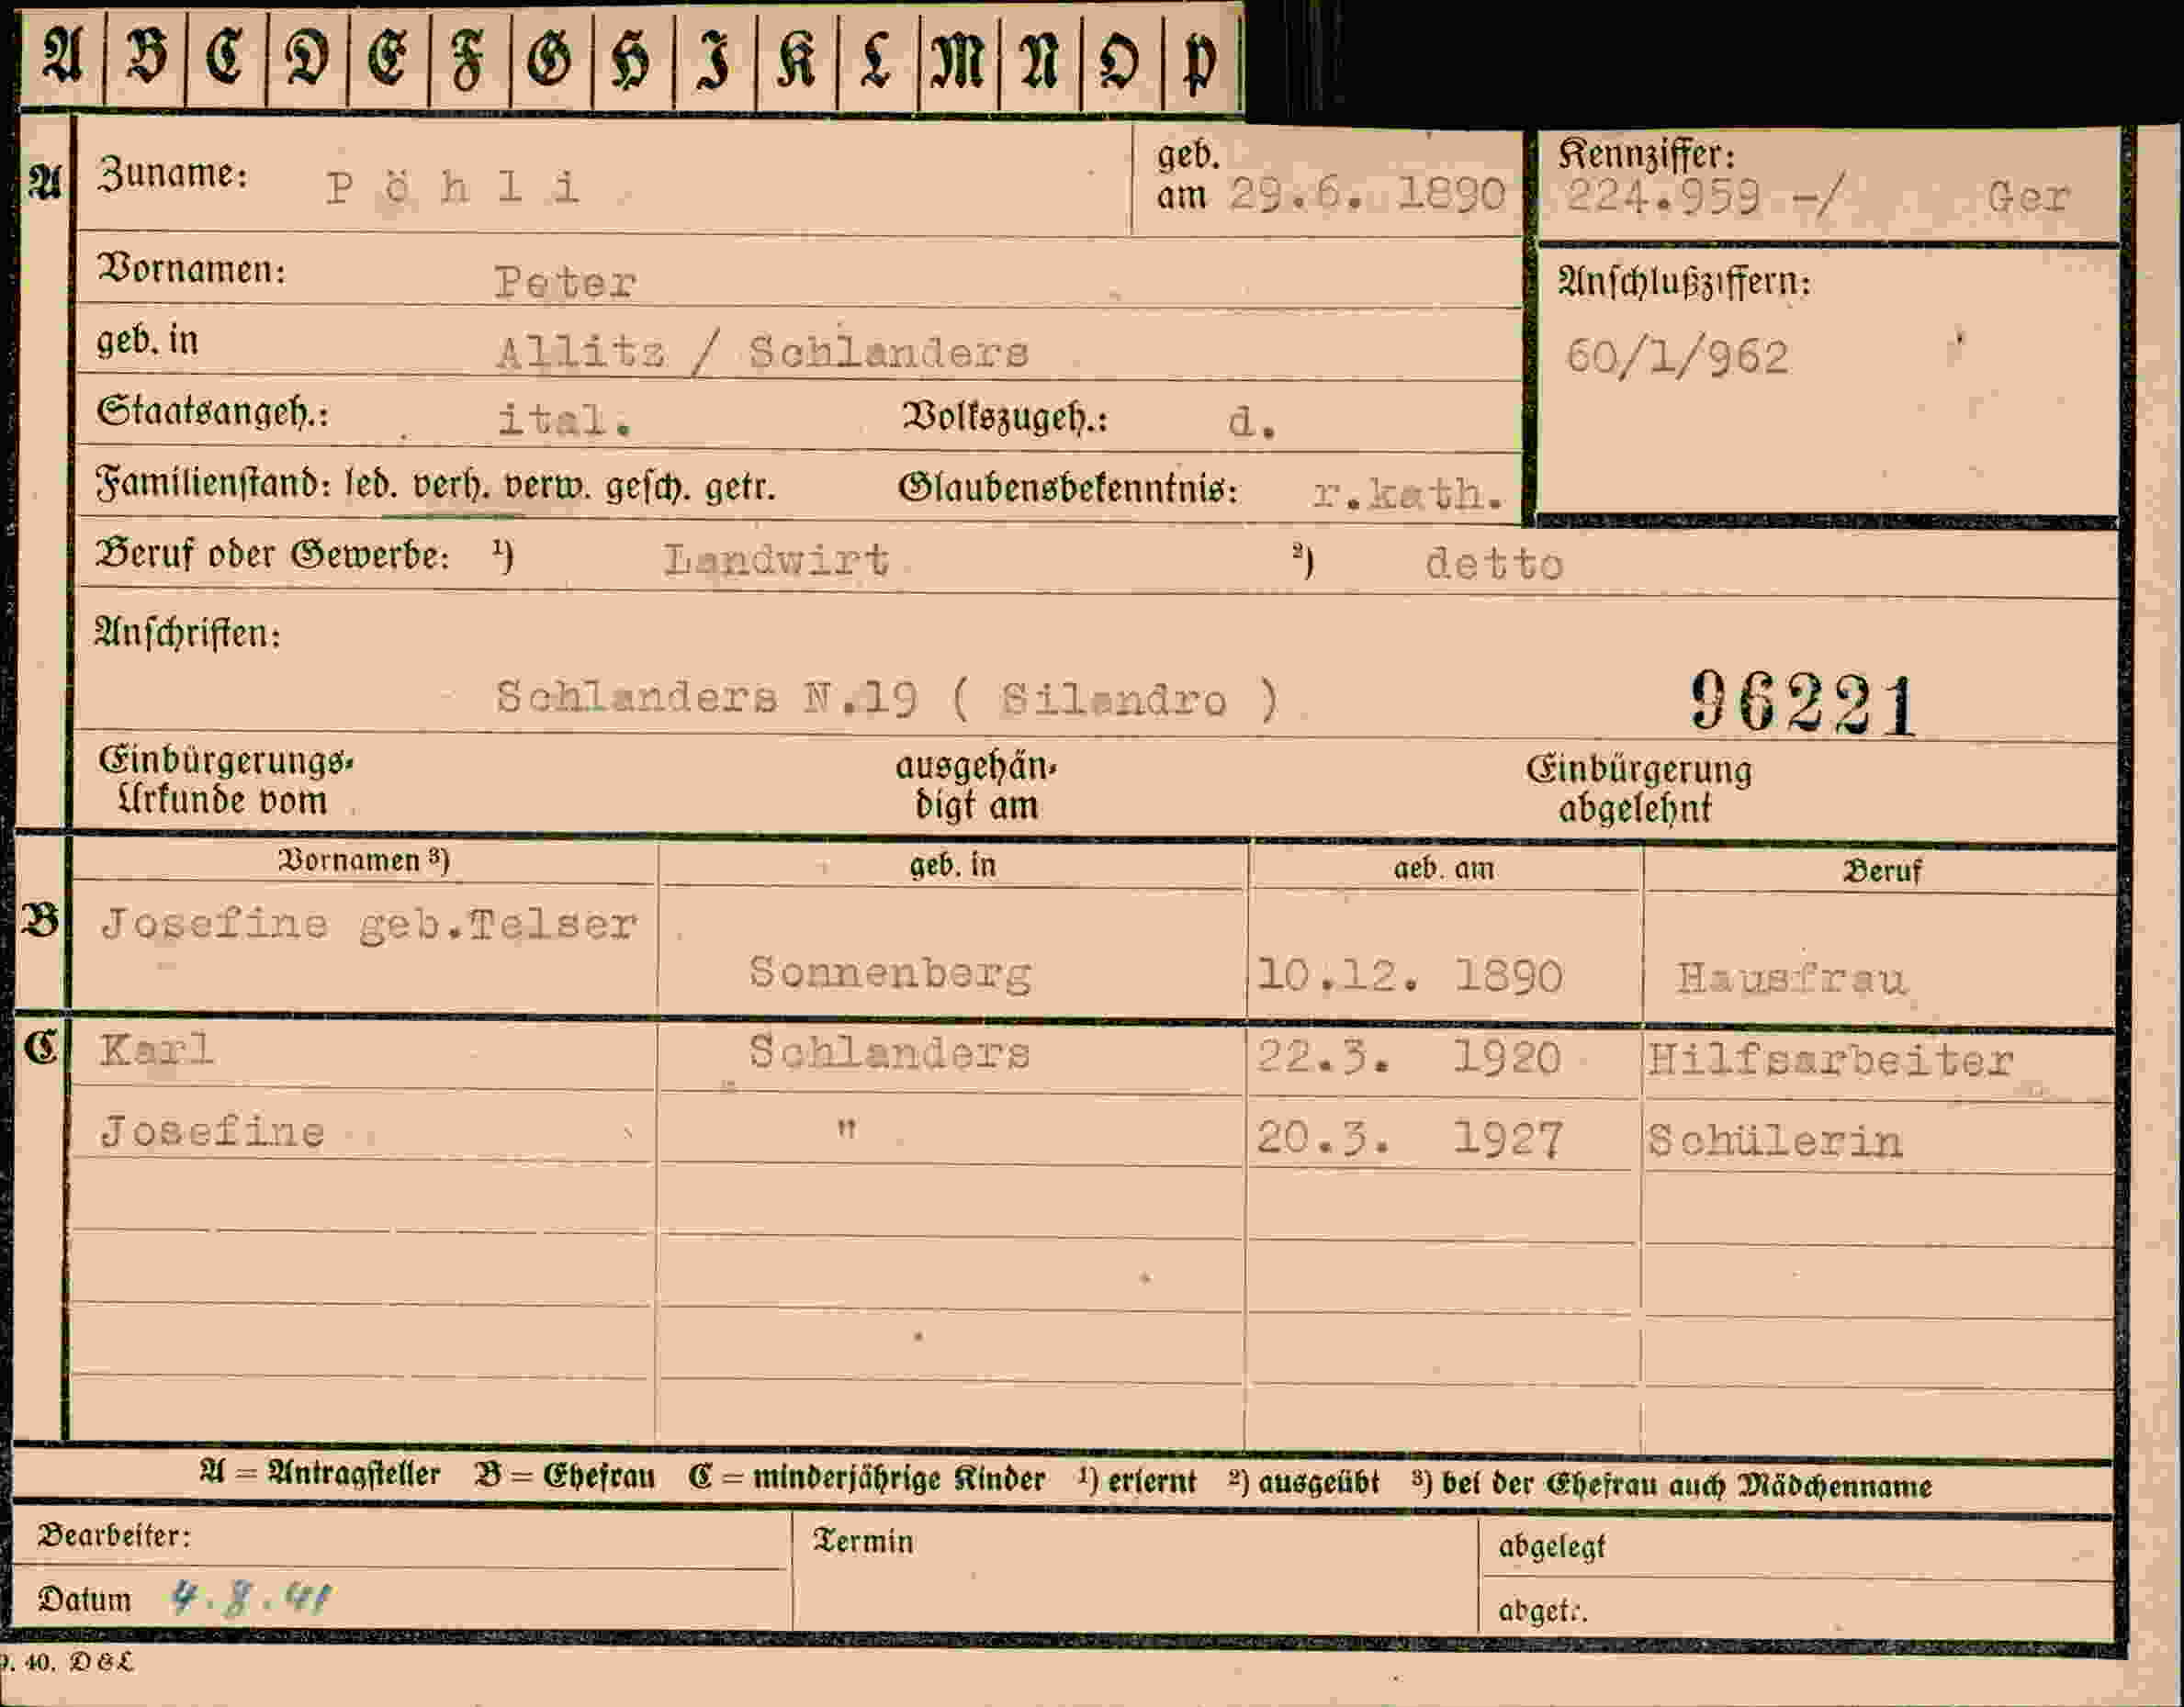 A B C D E F G H I K L M N O P
A Zuname: Pöhli geb. am 29.6. 1890 Kennziffer: 224.959 -/ Ger
Vornamen: Peter Anschlußziffern:
geb. in Allitz / Schlanders 60/1/962
Staatsangeh.: ital. Volkszugeh.: d.
Familienstand: led. verh. verw. gesch. getr. Glaubensbekenntnis: r.kath.
Beruf oder Gewerbe: ¹) Landwirt ²) detto
Anschriften:
Schlanders N.19 ( Silandro ) 96221
Einbürgerungs- ausgehän- Einbürgerung
Urkunde vom digt am abgelehnt
Vornamen ³) geb. in geb. am Beruf
B Josefine geb.Telser
Sonnenberg 10.12. 1890 Hausfrau
C Karl Schlanders 22.3. 1920 Hilfsarbeiter
Josefine " 20.3. 1927 Schülerin
A = Antragsteller B = Ehefrau C = minderjährige Kinder ¹) erlernt ²) ausgeübt ³) bei der Ehefrau auch Mädchenname
Bearbeiter: Termin abgelegt
Datum 4.8.41 abgetr.
9. 40. D&L